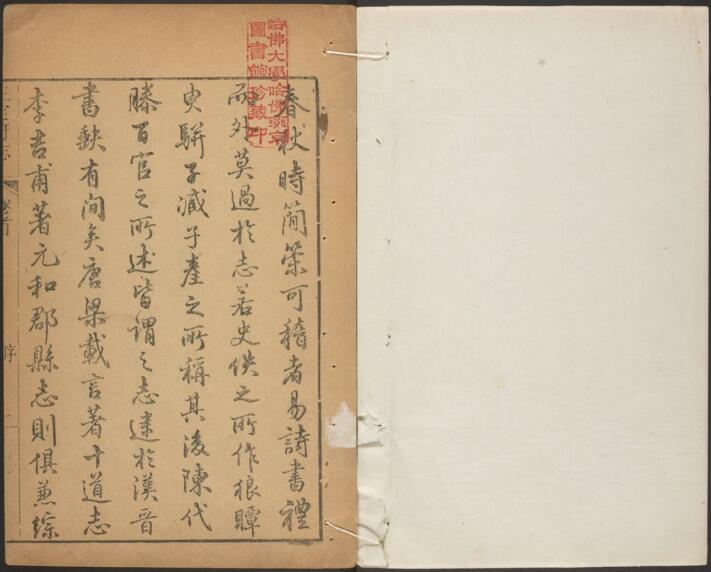 春秋時簡策可稽者易詩書禮
而外莫過於志若史佚之所作狼瞫
史駢子臧子產之所稱其後陳代
滕百官之所述皆謂之志逮於漢晉
書缺有間矣唐梁載言著十道志
李吉甫著元和郡縣志則俱兼綜
志
卷首
序
一
哈佛大學哈佛燕京
圖書館珍藏印